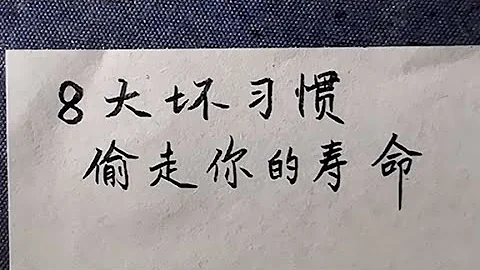 8大坏习惯
偷走你的寿命